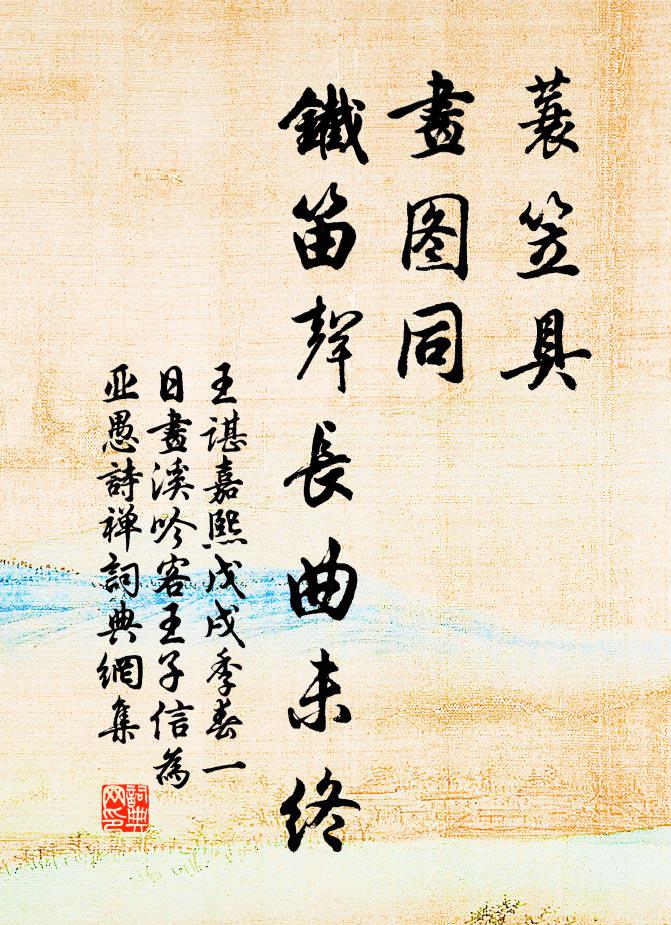 蓑笠具
畫图同
鐵笛聲長曲未終
王諶嘉熙戊戌季春一
日畫溪吟客王子信為
亚愚詩禅詞典網集
詞典
网印